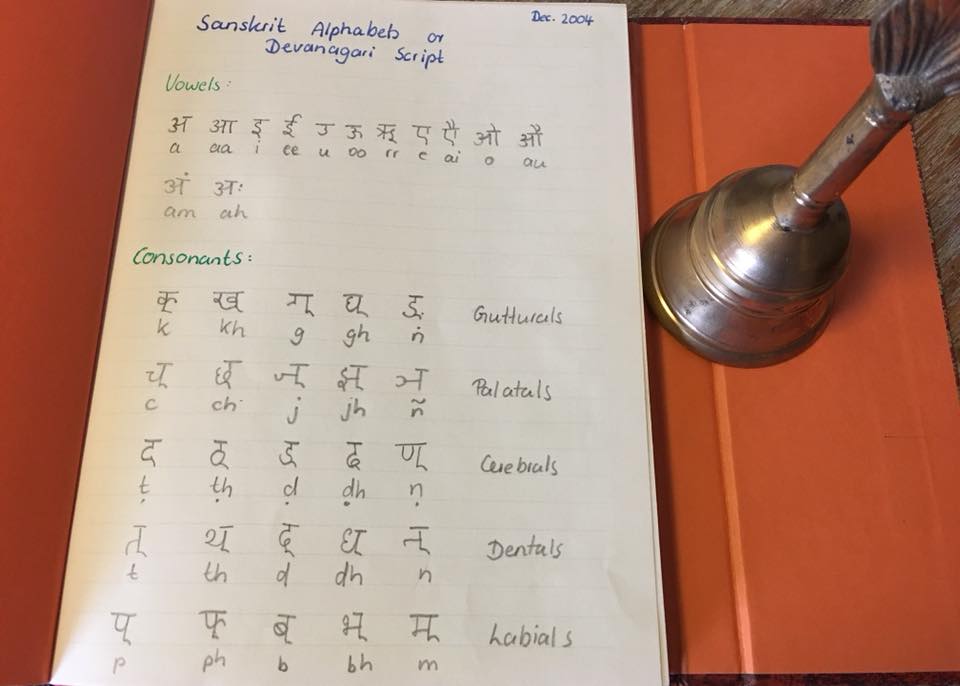 Dec. 2004
Sanskrit Alphabets or
Devanagari Script
Vowels:
अ आ इ ई उ ऊ ऋ ए ऐ ओ औ
a aa i ee u oo rr e ai o au
अं अः
am ah
Consonants:
क् ख् ग् घ् ङ् Gutturals
k kh g gh ṅ
च् छ् ज् झ् ञ Palatals
c ch j jh ñ
ट ठ् ड् ढ ण् Cerebrals
ṭ ṭh ḍ ḍh ṇ
त् थ् द् ध् न् Dentals
t th d dh n
प् फ् ब् भ् म् Labials
p ph b bh m